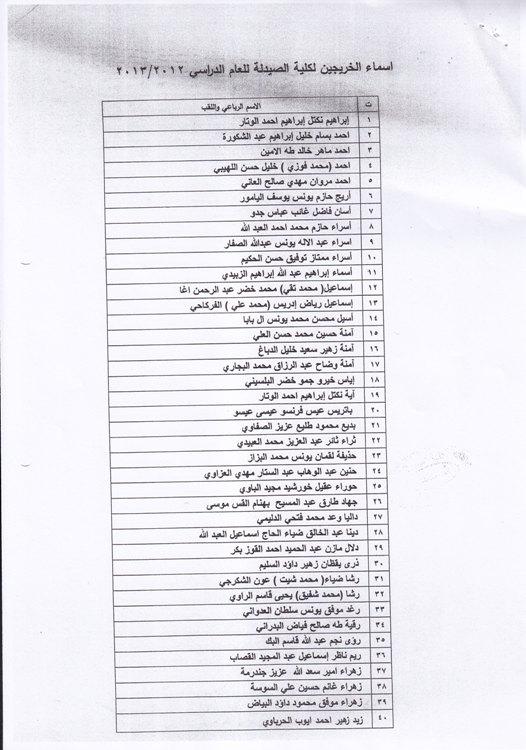 اسماء الخريجين لكلية الصيدلة للعام الدراسي ٢٠١٣/٢٠١٢
ت الاسم الرباعي واللقب
١ إبراهيم نكتل إبراهيم احمد الوتار
٢ احمد بسام خليل إبراهيم عبد الشكورة
٣ احمد ماهر خالد طه الامين
٤ احمد (محمد فوزي ) خليل حسن اللهيبي
٥ احمد مروان مهدي صالح العاني
٦ أريج حازم يونس يوسف اليامور
٧ أسان فاضل غائب عباس جدو
٨ أسراء حازم محمد احمد العبد الله
٩ اسراء عبد الاله يونس عبدالله الصفار
١٠ أسراء ممتاز توفيق حسن الحكيم
١١ أسماء إبراهيم عبد الله إبراهيم الزبيدي
١٢ إسماعيل( محمد تقي) محمد خضر عبد الرحمن اغا
١٣ إسماعيل رياض إدريس (محمد علي ) الفركاحي
١٤ أسيل محسن محمد يونس ال بابا
١٥ آمنة حسين محمد حسن العلي
١٦ آمنة زهير سعيد خليل الدباغ
١٧ آمنة وضاح عبد الرزاق محمد البجاري
١٨ إياس خيرو جمو خضر البلسيني
١٩ آية نكتل إبراهيم احمد الوتار
٢٠ باتريس عيس فرنسو عيسى عيسو
٢١ بديع محمود طليع عزيز الصفاوي
٢٢ ثراء ثائر عبد العزيز محمد العبيدي
٢٣ حذيفة لقمان يونس محمد البزاز
٢٤ حنين عبد الوهاب عبد الستار مهدي العزاوي
٢٥ حوراء عقيل خورشيد مجيد الباوي
٢٦ جهاد طارق عبد المسيح بهنام القس موسى
٢٧ داليا وعد محمد فتحي الدليمي
٢٨ دينا عبد الخالق ضياء الحاج اسماعيل العبد الله
٢٩ دلال مازن عبد الحميد احمد القوز بكر
٣٠ ذرى يقظان زهير داؤد السليم
٣١ رشا ضياء( محمد شيت ) عون الشكرجي
٣٢ رشا (محمد شفيق) يحيى قاسم الراوي
٣٣ رغد موفق يونس سلطان العدواني
٣٤ رقية طه صالح فياض البدراني
٣٥ رؤى نجم عبد الله قاسم البك
٣٦ ريم ناظر إسماعيل عبد المجيد القصاب
٣٧ زهراء امير سعد الله عزيز جندرمة
٣٨ زهراء غانم حسين علي السوسة
٣٩ زهراء موفق محمود داؤد البياض
٤٠ زيد زهير احمد ايوب الحرباوي